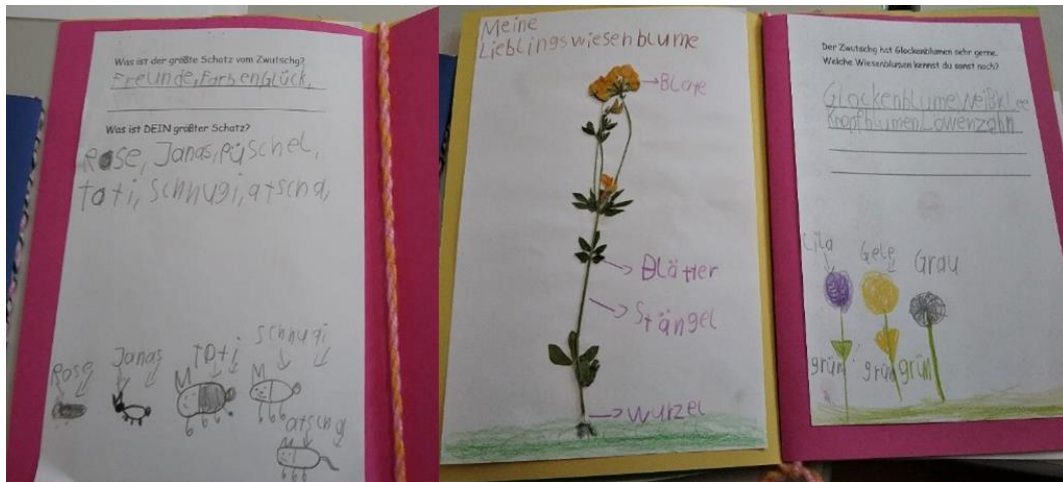 Was ist der größte Schatz vom Zwutschg?
Freunde, Farben Glück,
Was ist DEIN größter Schatz?
Rose, Janas, Püschel,
toti, Schnugi, atscha,
Rose
Janas
toti
Schnugi
atscha
Meine
Lieblingswiesenblume
Blüte
Blätter
Stängel
Wurzel
Der Zwutschg hat Glockenblumen sehr gerne.
Welche Wiesenblumen kennst du sonst noch?
Glockenblume, Weißklee
Knopfblumen Löwenzahn
Lila
Gelb
Grau
grün
grün
grün